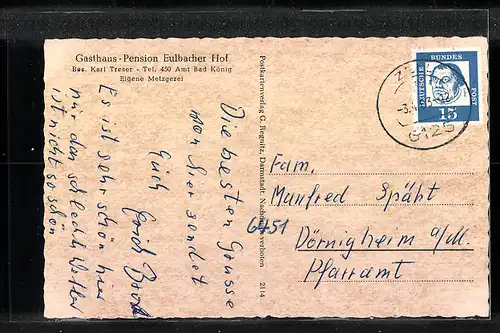 Gasthaus-Pension Eulbacher Hof
Bes. Karl Treser - Tel. 450 Amt Bad König
Eigene Metzgerei
Die besten Grüsse
von hier sendet
Euch Erich
Es ist sehr schön hier
nur das schlecht Wetter
ist nicht so schön
Postkartenverlag G. Regnitz, Darmstadt. Nachdruck verboten 2114
DEUTSCHE BUNDES POST
15
6125
6451
Fam.
Manfred Späht
Dörnigheim a/M.
Pfarramt